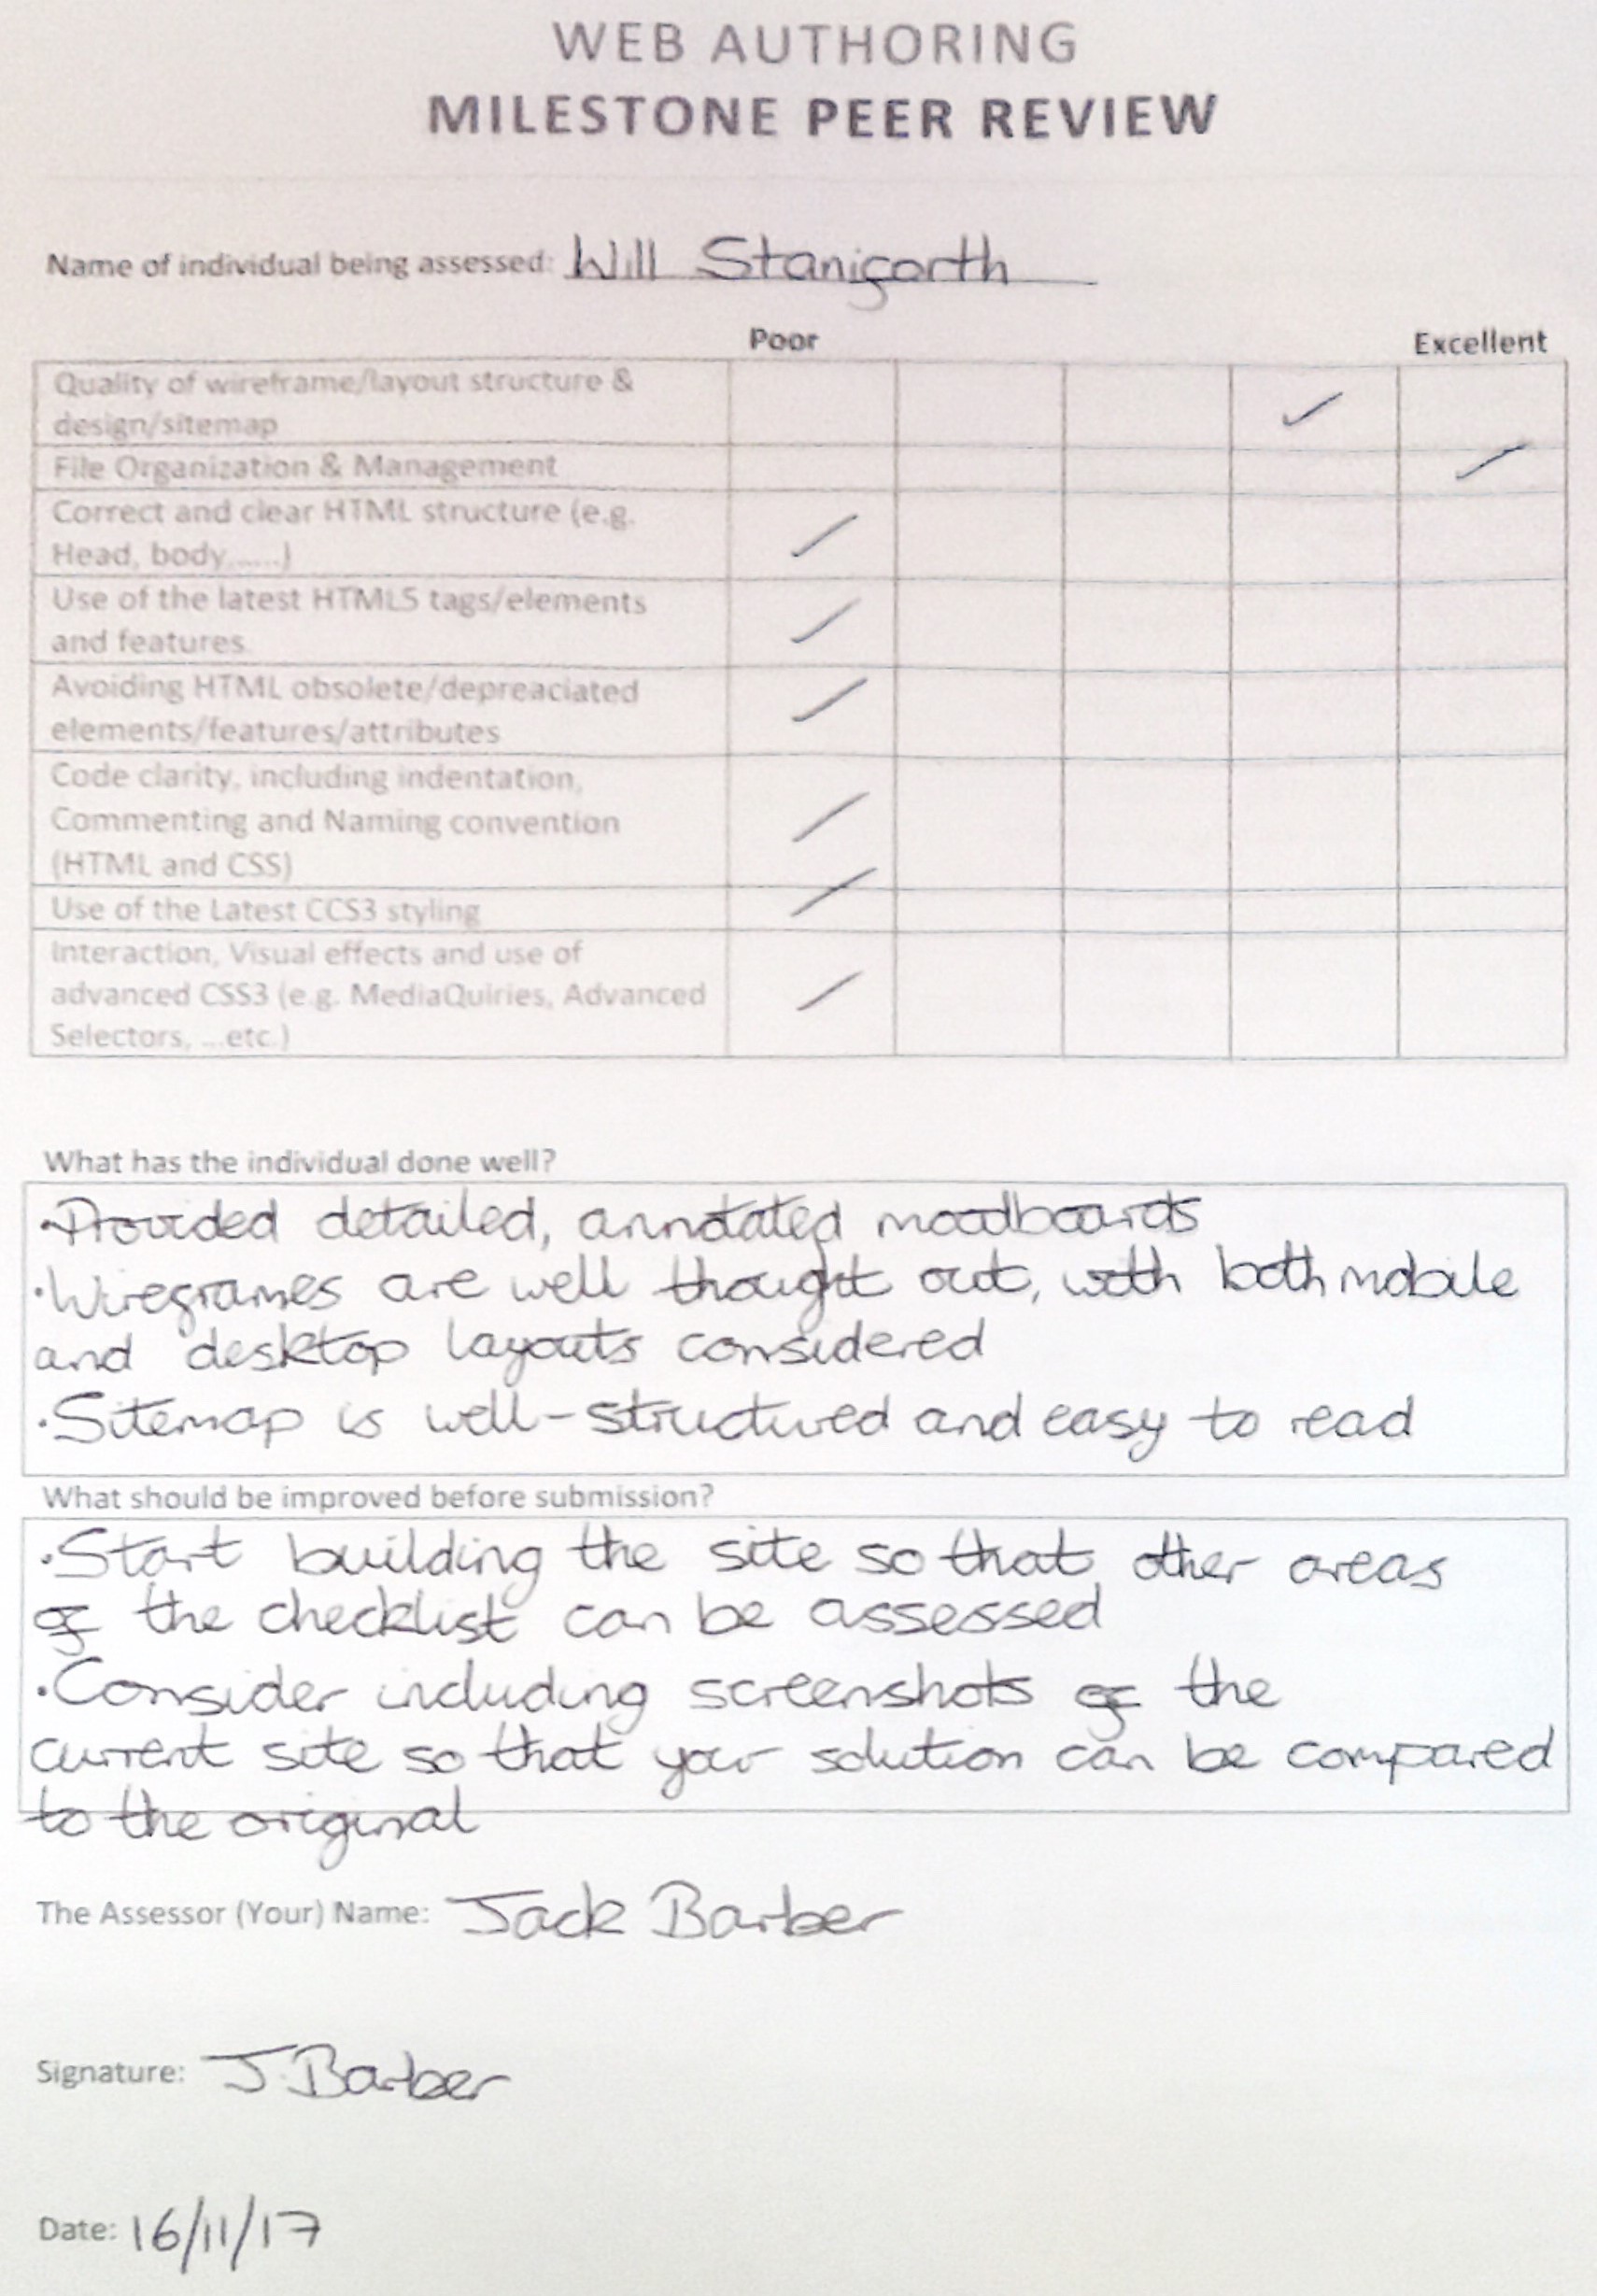 WEB AUTHORING
MILESTONE PEER REVIEW
Name of individual being assessed: Will Staniforth
Poor Excellent
Quality of wireframe/layout structure &
design/sitemap ✓
File Organization & Management ✓
Correct and clear HTML structure (e.g.
Head, body,.....) ✓
Use of the latest HTML5 tags/elements
and features ✓
Avoiding HTML obsolete/depreaciated
elements/features/attributes ✓
Code clarity, including indentation,
Commenting and Naming convention
(HTML and CSS) ✓
Use of the Latest CCS3 styling ✓
Interaction, Visual effects and use of
advanced CSS3 (e.g. MediaQuiries, Advanced
Selectors, ...etc.) ✓
What has the individual done well?
·Provided detailed, annotated moodboards
·Wireframes are well thought out, with both mobile
and desktop layouts considered
·Sitemap is well-structured and easy to read
What should be improved before submission?
·Start building the site so that other areas
of the checklist can be assessed
·Consider including screenshots of the
current site so that your solution can be compared
to the original
The Assessor (Your) Name: Jack Barber
Signature: J.Barber
Date: 16/11/17